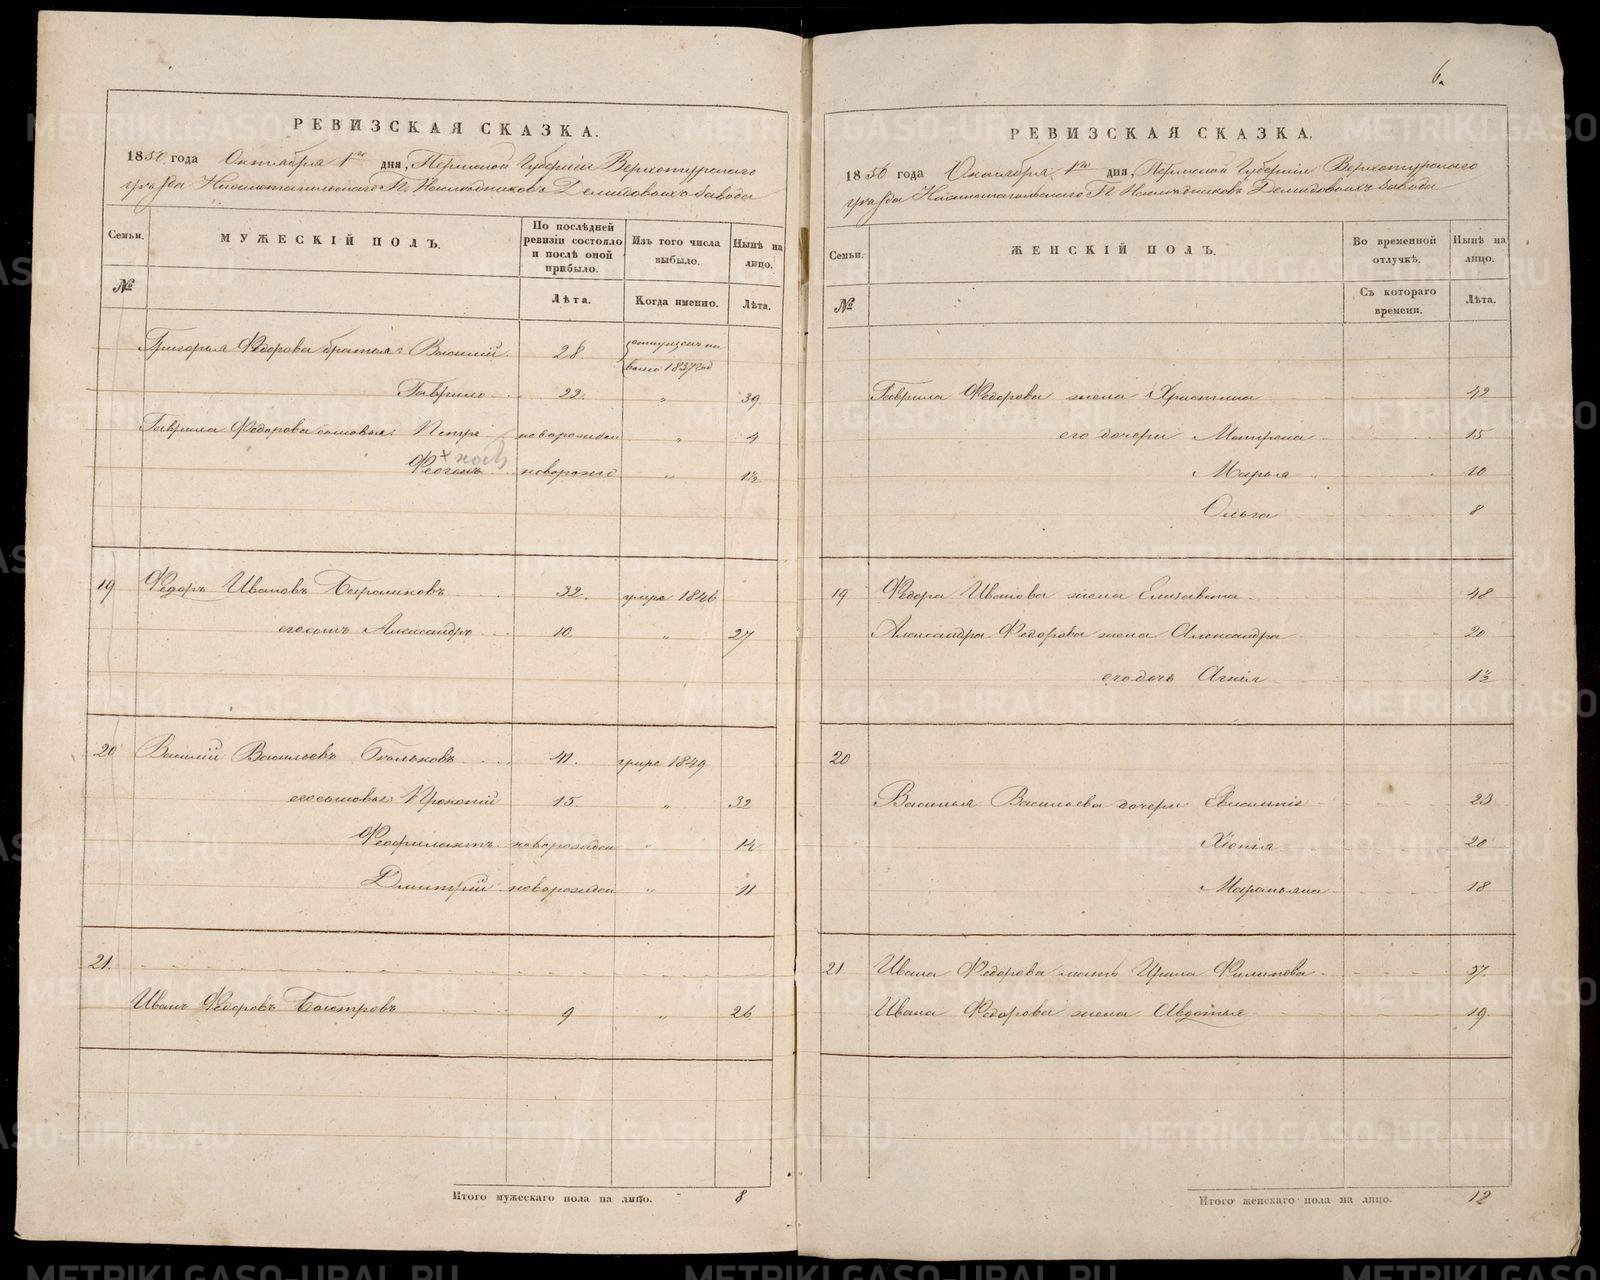 РЕВИЗСКАЯ СКАЗКА.
1850 года Октября 1го дня, Пермской Губерніи Верхотурскаго
уѣзда Нижнетагильскаго Гг. Наслѣдниковъ Демидовыхъ завода
Семьи. МУЖЕСКІЙ ПОЛЪ. По послѣдней ревизіи состояло и послѣ оной прибыло. Изъ того числа выбыло. Нынѣ на лицо.
№ Лѣта. Когда именно. Лѣта.
Григорья Федорова братья: Василій 28 отпущенъ на волю 1837 год
Гаврило 22. " 39
Гаврила Федорова сыновья: Петръ новорожден " 4
Феогенъ новорожд " 1½
19 Федоръ Ивановъ Баранниковъ 32. умре 1846
его сынъ Александръ 10. " 27
20 Василій Васильевъ 41. умре 1849
его сыновья: Прокопій 15. " 32
Феофилактъ новорожден " 14
Дмитрій новорожден " 11
21.
Иванъ Федоровъ Быстровъ 9 " 26
Итого мужескаго пола на лицо. 8
6.
РЕВИЗСКАЯ СКАЗКА.
1850 года Октября 1го дня, Пермской Губерніи Верхотурскаго
уѣзда Нижнетагильскаго Гг. Наслѣдниковъ Демидовыхъ завода
Семьи. ЖЕНСКІЙ ПОЛЪ. Во временной отлучкѣ. Нынѣ на лицо.
№ Съ котораго времени. Лѣта.
Гаврила Федорова жена Христина 42
его дочери Матрена 15
Марья 10
Ольга 8
19 Федора Иванова жена Елизавета 48
Александра Федорова жена Александра 20
его дочь Агнія 1½
20
Василья Васильева дочери: Евлампія 23
Хіонія 20
Марамьяна 18
21. Ивана Федорова мать Ирина Филипова 57.
Ивана Федорова жена Авдотья 19
Итого женскаго пола на лицо. 12
METRIKI.GASO-URAL.RU